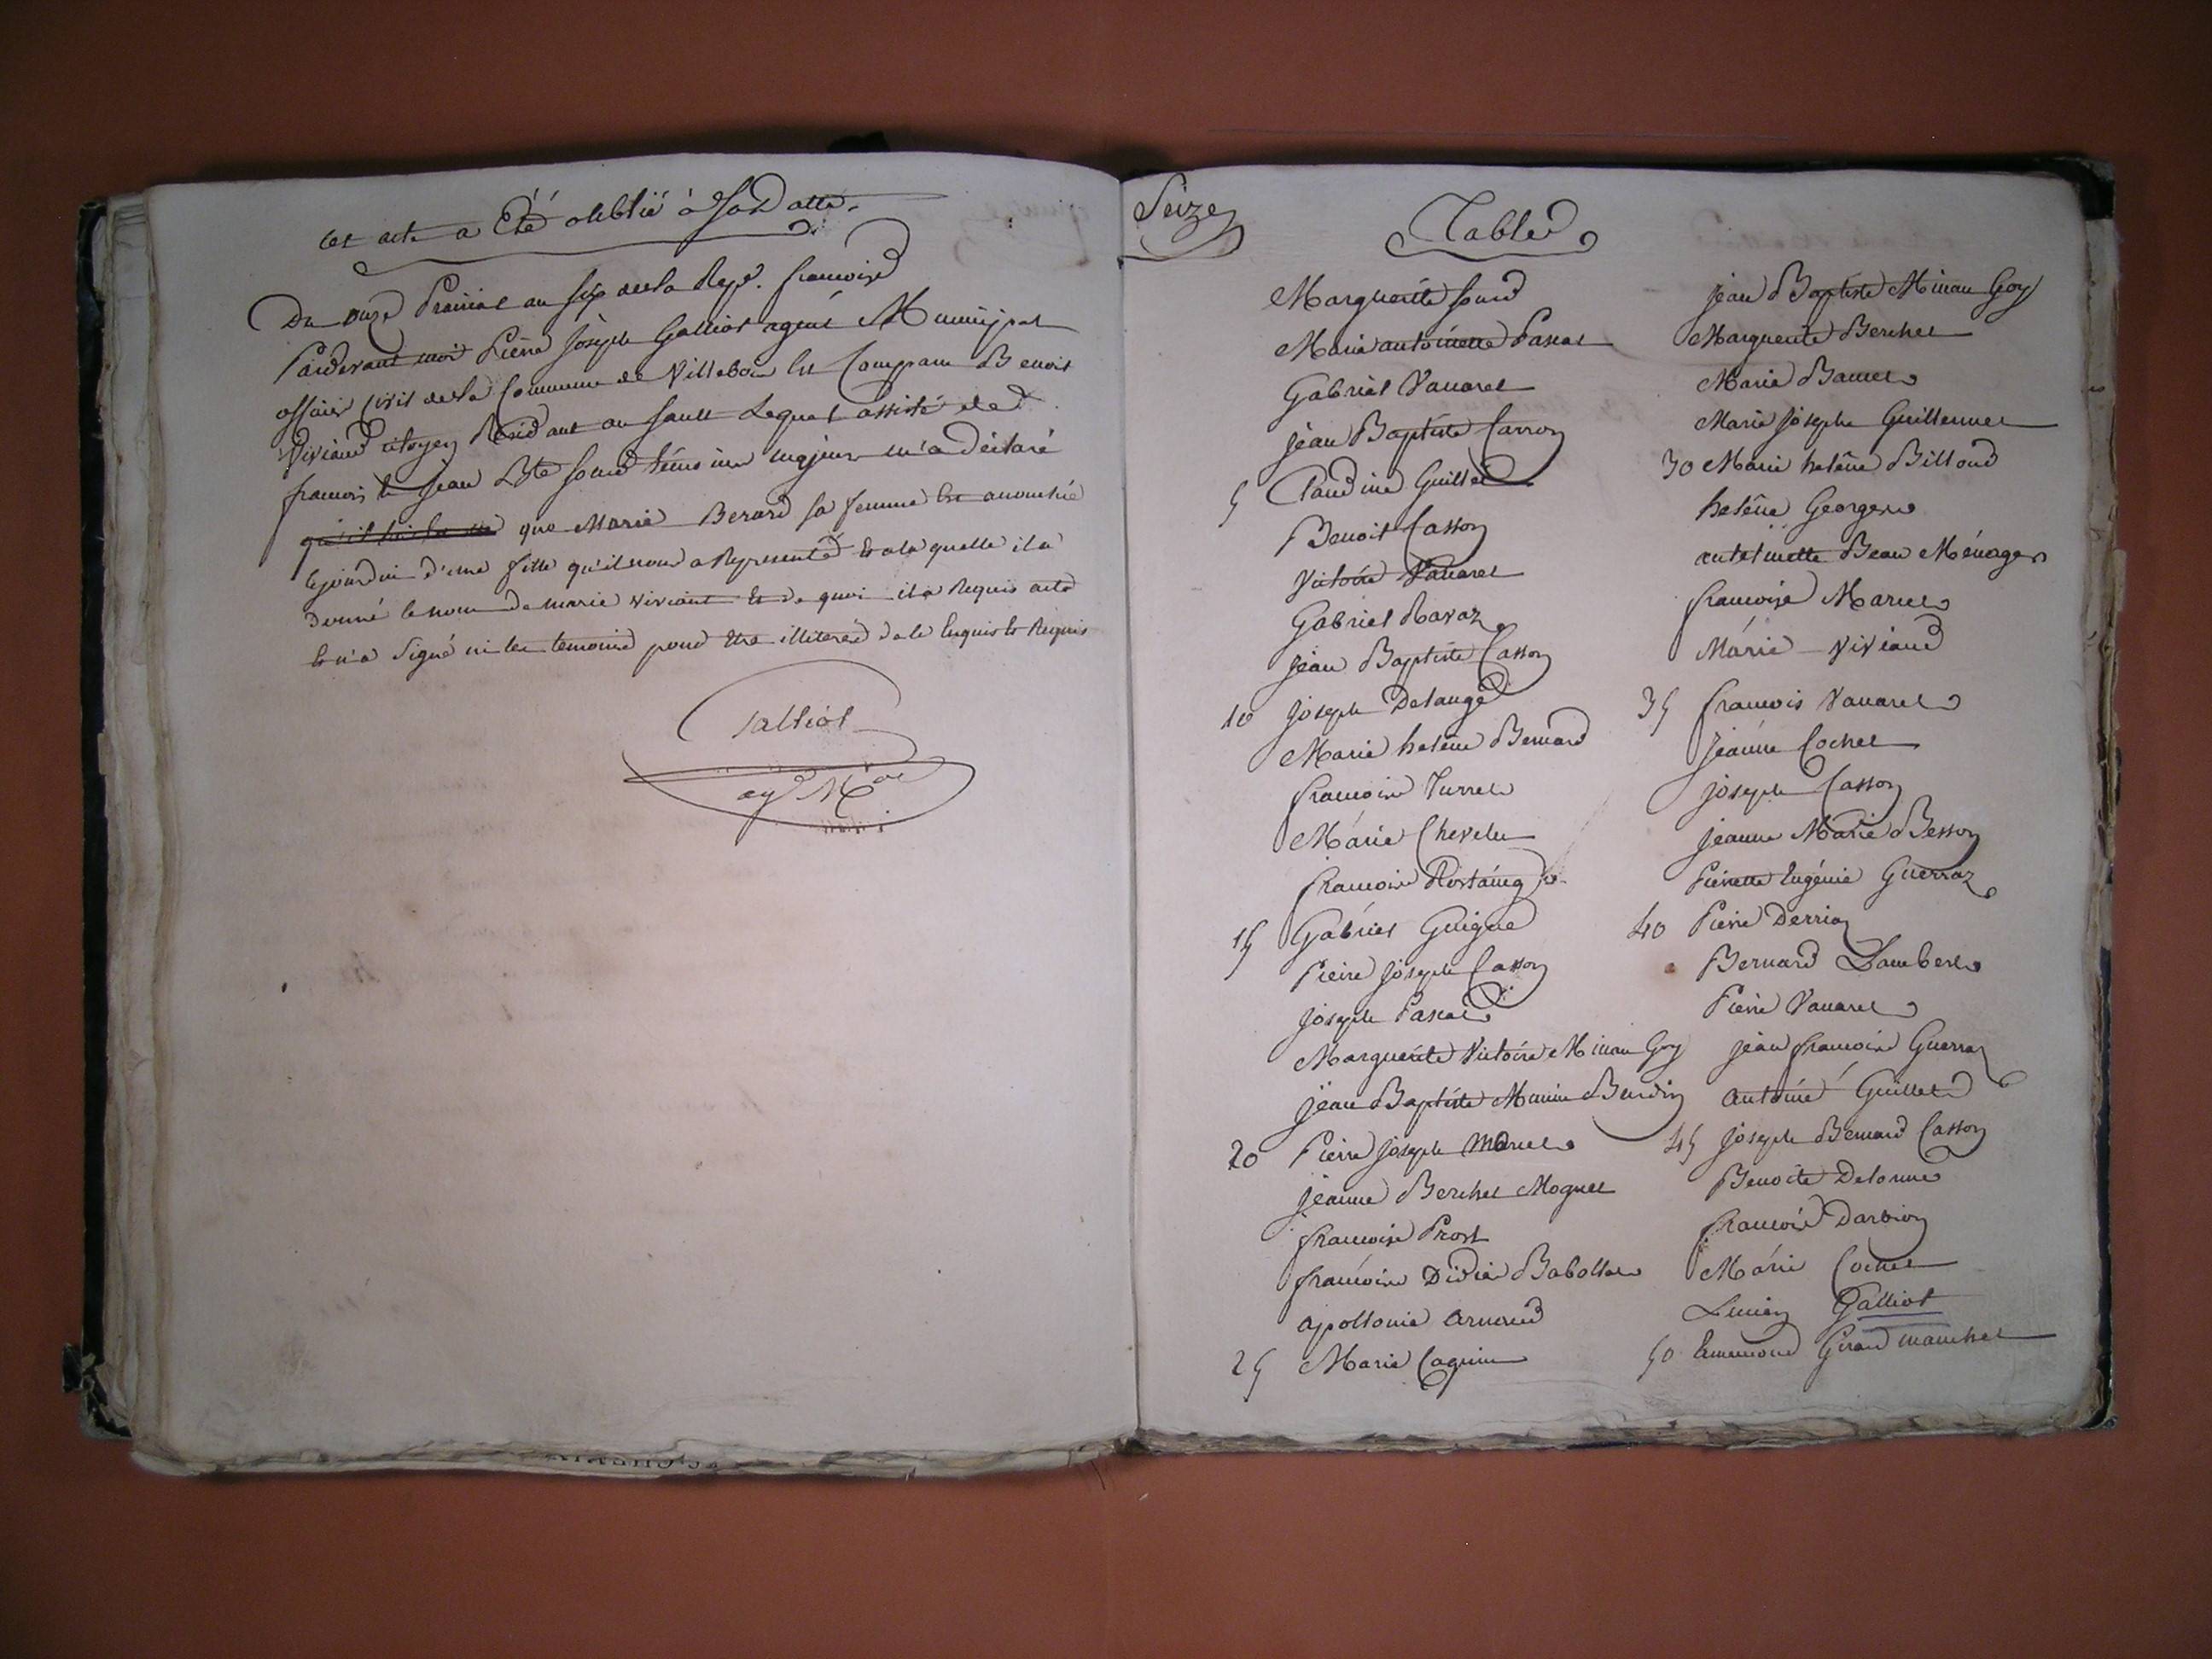 cet acte a Eté oublié à Sa Datte.
Du onze Prairial an six de la Rep.e francoise
Pardevant moi Pierre Joseph Galliot agent Municipal
officier Civil de la Commune de Villebois Est Comparu Benoit
Viviand citoyen Residant au Sault Lequel assisté de
francois et Jean Bte Sourd témoins majeurs m'a déclaré
que Marie Berard sa femme Est accouchée
cejourdui d'une fille qu'il nous a Representé Et a la quelle il a
donné le nom de marie viviant Et de quoi il a Requis acte
Et n'a Signé ni les temoins pour Etre illiteres de ce Enquis et Requis
Galliot
ag M.al
Seize
Table
Marguerite Sourd
Marie antoinette Pascal
Gabriel Vavarel
jean Baptiste Carron
5 Claudine Guillet
Benoit Casson
Victoire Vavarel
Gabriel Ravaz
jean Baptiste Casson
10 joseph Delange
Marie heléne Bernard
francoise Turrel
Marie Chevelu
francoise Rostaing
15 Gabriel Guigue
Pierre joseph Casson
joseph Pascal
Marguerite Victoire Minau Goy
jean Baptiste Marin Burdin
20 Pierre joseph Marcel
jeanne Berchet Moguet
francoise Prost
francoise Didier Babollat
apollonie arnaud
25 Marie Caguin
jean Baptiste Minau Goy
Marguerite Berchet
Marie
Marie josephe Guillermet
30 Marie heléne Billoud
heléne Georges
antoinette Beau Ménager
francoise Marcel
Marie Viviand
35 francois Vavarel
jeanne Cochet
joseph Casson
jeanne Marie Besson
Pierrette Eugénie Guerraz
40 Pierre Derrion
Bernard Lambert
Pierre Vavarel
jean francoise Guerraz
antoine Guillet
45 joseph Bernard Casson
Benoite Delorme
francoise Darvion
Marie Cochet
Lucien Galliot
50 Emmond Girard manchet